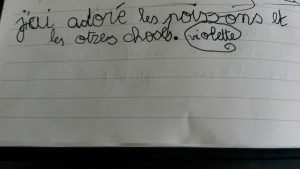 j'ai adoré les poissons et
les otres choses. violette